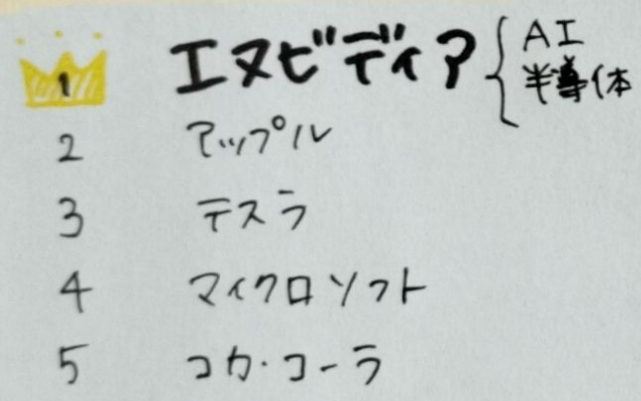 1 エヌビディア { AI
半導体
2 アップル
3 テスラ
4 マイクロソフト
5 コカ・コーラ